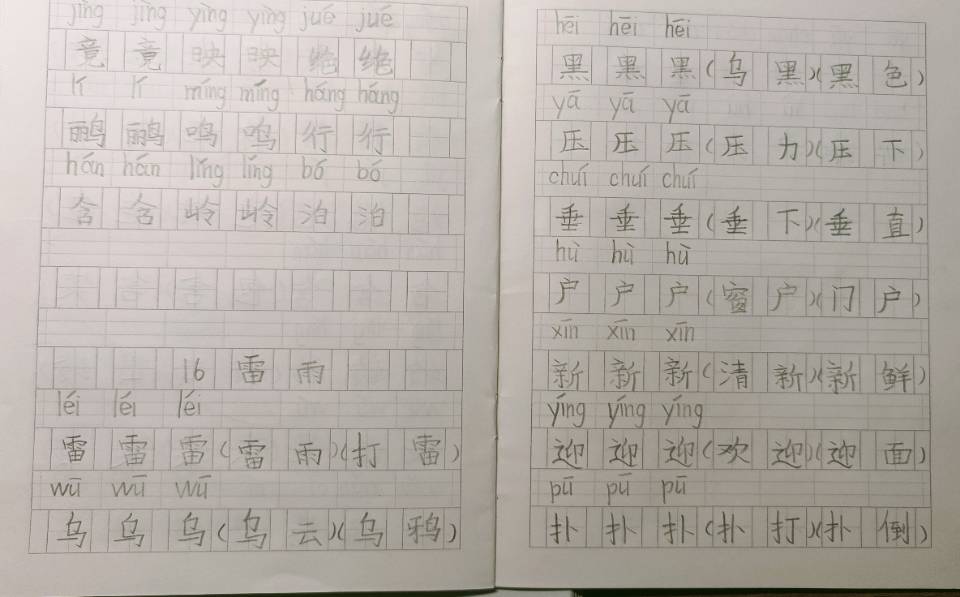 jìng jìng yìng yìng jué jué
竟 竟 映 映 绝 绝
lí lí míng míng háng háng
鹂 鹂 鸣 鸣 行 行
hán hán lǐng lǐng bó bó
含 含 岭 岭 泊 泊
16 雷 雨
léi léi léi
雷 雷 雷(雷 雨)(打 雷)
wū wū wū
乌 乌 乌(乌 云)(乌 鸦)
hēi hēi hēi
黑 黑 黑(乌 黑)(黑 色)
yā yā yā
压 压 压(压 力)(压 下)
chuí chuí chuí
垂 垂 垂(垂 下)(垂 直)
hù hù hù
户 户 户(窗 户)(门 户)
xīn xīn xīn
新 新 新(清 新)(新 鲜)
yíng yíng yíng
迎 迎 迎(欢 迎)(迎 面)
pū pū pū
扑 扑 扑(扑 打)(扑 倒)